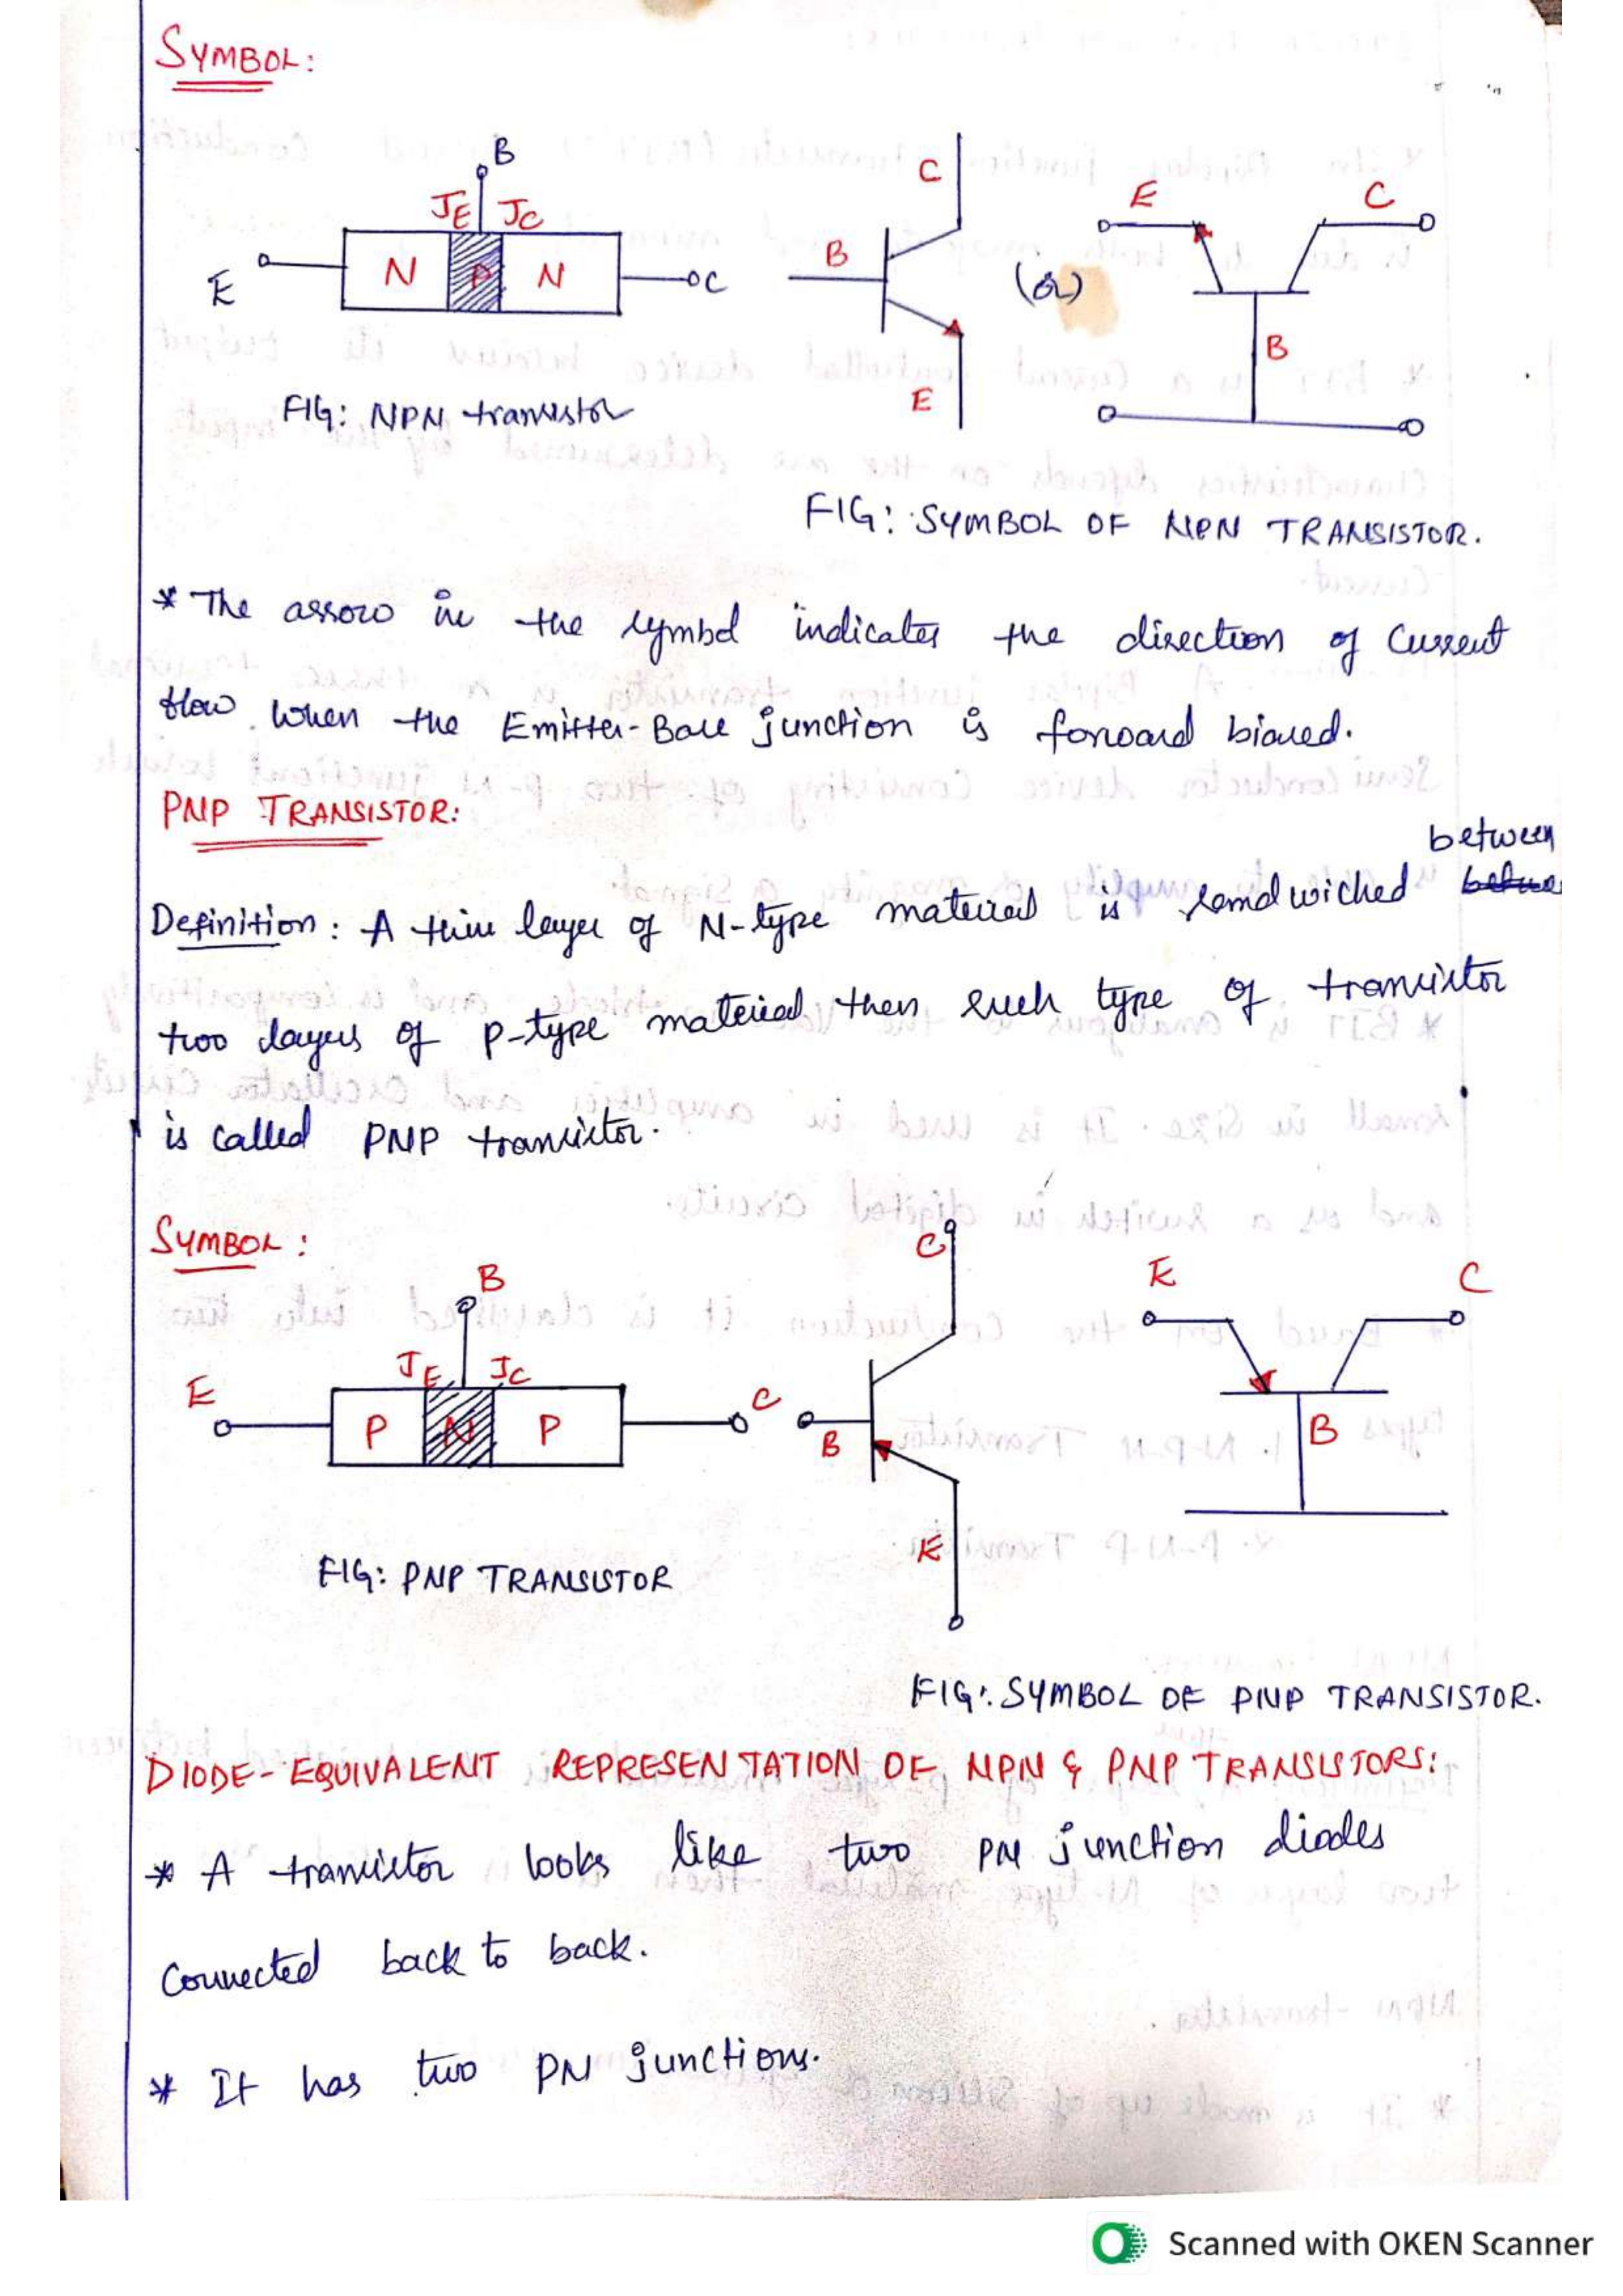 SYMBOL:
B
JE JC
E N P N C
FIG: NPN transistor
C
B
E
(or)
E C
B
FIG: SYMBOL OF NPN TRANSISTOR.
* The arrow in the symbol indicates the direction of Current
flow when the Emitter-Base junction is forward biased.
PNP TRANSISTOR:
between
Definition: A thin layer of N-type material is sandwiched
two layers of p-type material then such type of transistor
is called PNP transistor.
SYMBOL:
B
JE JC
E P N P C
FIG: PNP TRANSISTOR
C
B
E
E C
B
FIG: SYMBOL OF PNP TRANSISTOR.
DIODE-EQUIVALENT REPRESENTATION OF NPN & PNP TRANSISTORS:
* A transistor looks like two PN junction diodes
Connected back to back.
* It has two PN junctions.
Scanned with OKEN Scanner